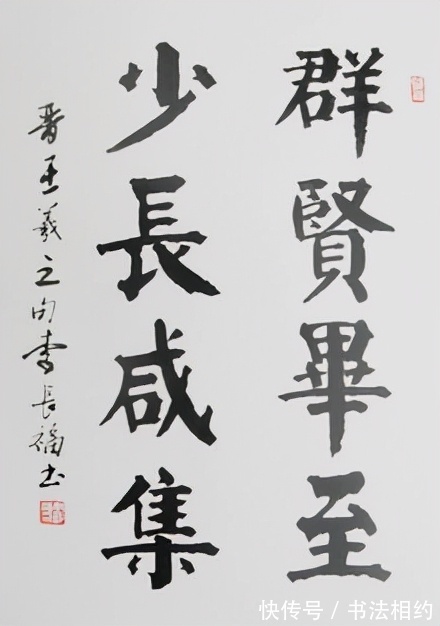 群賢畢至
少長咸集
晋王羲之句李長福书
快传号/书法相约